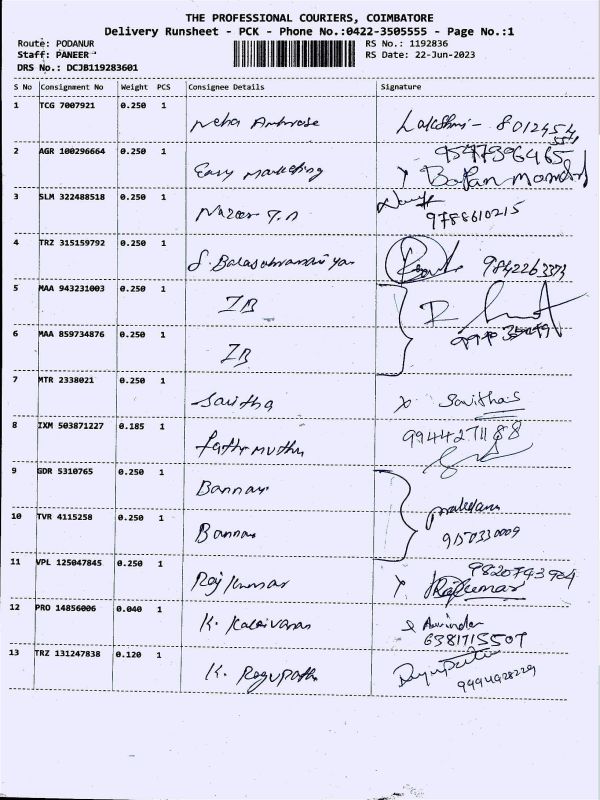 THE PROFESSIONAL COURIERS, COIMBATORE
Delivery Runsheet - PCK - Phone No.:0422-3505555 - Page No.:1
Route: PODANUR RS No.: 1192836
Staff: PANEER RS Date: 22-Jun-2023
DRS No.: DCJB119283601
S No Consignment No Weight PCS Consignee Details Signature
1 TCG 7007921 0.250 1
Neha Ambrose Lakshmi - 8012454
2 AGR 100296664 0.250 1 9547396465
Easy Marketing
3 SLM 322488518 0.250 1
Nazeer T.A 9788610215
4 TRZ 315159792 0.250 1
S. Balasubramaniyan 9842263373
5 MAA 943231003 0.250 1
IB
6 MAA 859734876 0.250 1
IB
7 MTR 2338021 0.250 1
Savitha x Savitha S
8 IXM 503871227 0.185 1 9944271188
Pathimuthu
9 GDR 5310765 0.250 1
Bannari
10 TVR 4115258 0.250 1
Bannari 9150330009
11 VPL 125047845 0.250 1 9820743904
Raj Kumar Rajkumar
12 PRO 14856006 0.040 1
K. Kalaivanan 6381715507
13 TRZ 131247838 0.120 1
K. Regupathi 9994928229